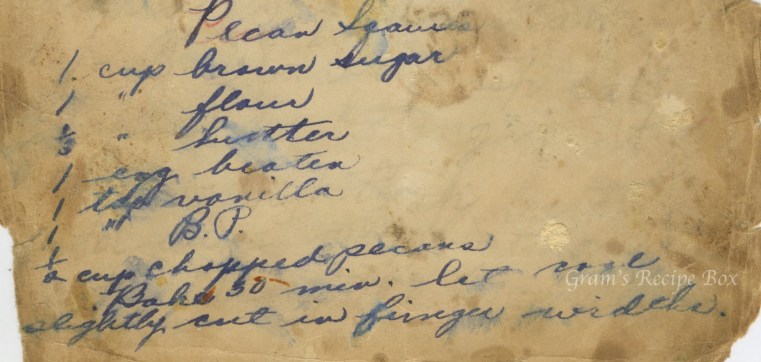 Pecan Squares
1 cup brown sugar
1 " flour
1/3 " butter
1 egg beaten
1 tsp vanilla
1 " B.P.
1/2 cup chopped pecans
Bake 30 min. let cool
slightly cut in finger widths.
Gram's Recipe Box